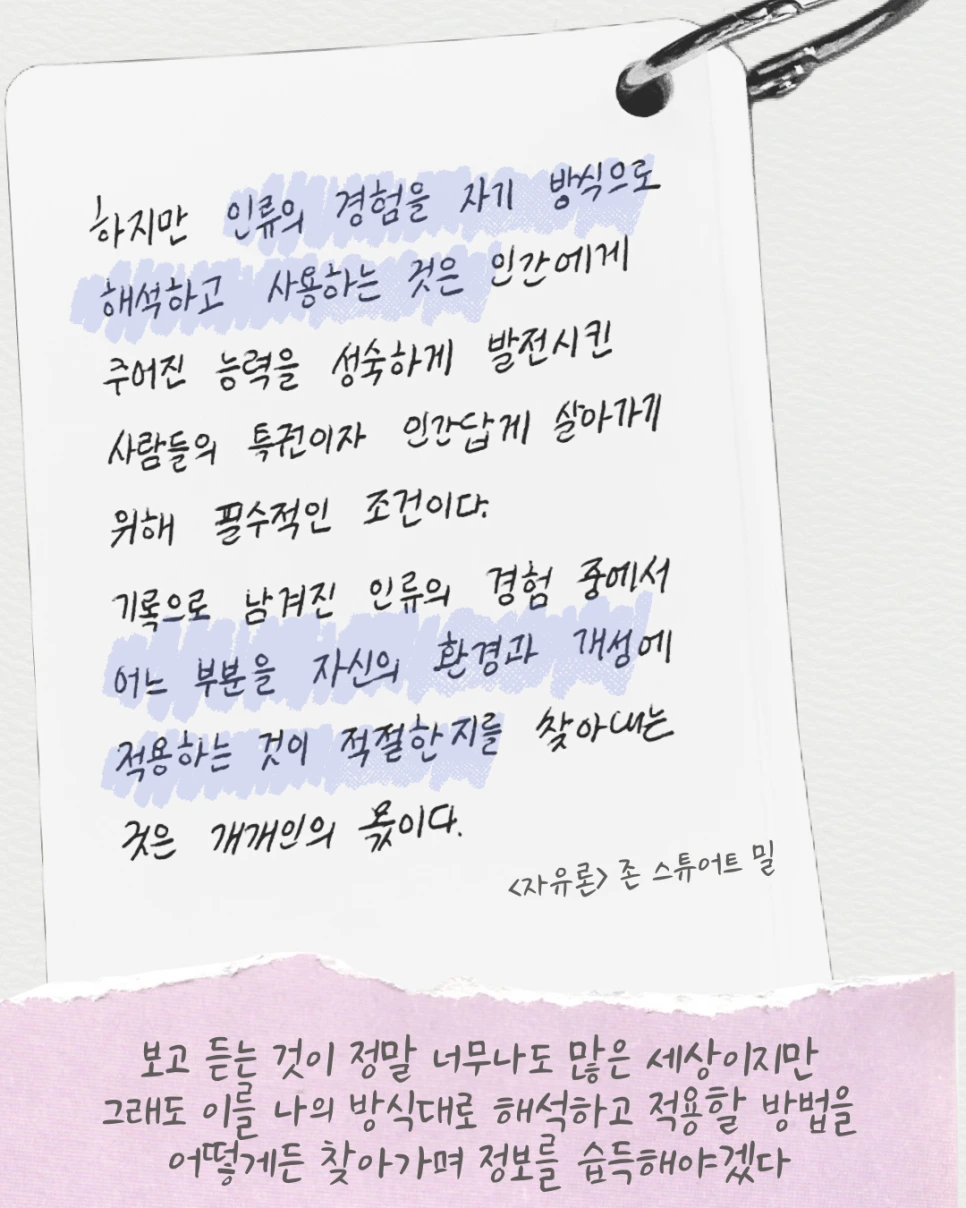 하지만 인류의 경험을 자기 방식으로
해석하고 사용하는 것은 인간에게
주어진 능력을 성숙하게 발전시킨
사람들의 특권이자 인간답게 살아가기
위해 필수적인 조건이다.
기록으로 남겨진 인류의 경험 중에서
어느 부분을 자신의 환경과 개성에
적용하는 것이 적절한지를 찾아내는
것은 개개인의 몫이다.
<자유론> 존 스튜어트 밀
보고 듣는 것이 정말 너무나도 많은 세상이지만
그래도 이를 나의 방식대로 해석하고 적용할 방법을
어떻게든 찾아가며 정보를 습득해야겠다